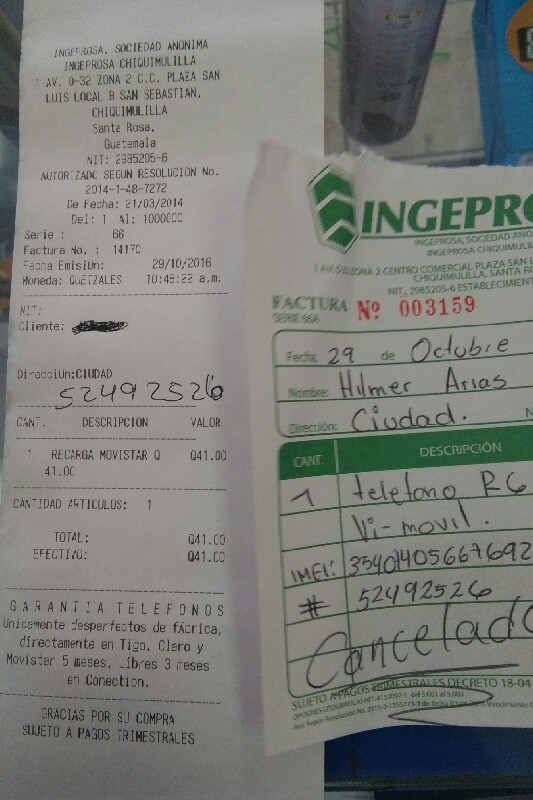 INGEPROSA, SOCIEDAD ANONIMA
INGEPROSA CHIQUIMULILLA
1 AV. 0-32 ZONA 2 C.C. PLAZA SAN
LUIS LOCAL B SAN SEBASTIAN,
CHIQUIMULILLA
Santa Rosa,
Guatemala
NIT: 2985205-6
AUTORIZADO SEGUN RESOLUCION No.
2014-1-48-7272
De Fecha: 21/03/2014
Del: 1 Al: 1000000
Serie : 66
Factura No. : 14170
Fecha EmisiUn: 29/10/2016
Moneda: QUETZALES 10:49:22 a.m.
NIT:
Cliente:
DirecciUn:CIUDAD
52492526
CANT. DESCRIPCION VALOR
1 RECARGA MOVISTAR Q Q41.00
41.00
CANTIDAD ARTICULOS: 1
TOTAL: Q41.00
EFECTIVO: Q41.00
GARANTIA TELEFONOS
Unicamente desperfectos de fábrica,
directamente en Tigo, Claro y
Movistar 5 meses, Libres 3 meses
en Conection.
GRACIAS POR SU COMPRA
SUJETO A PAGOS TRIMESTRALES
INGEPRO
INGEPROSA, SOCIEDAD ANO
INGEPROSA CHIQUIMULIL
ZONA 2 CENTRO COMERCIAL PLAZA SAN L
CHIQUIMULILLA, SANTA RO
NIT: 2985205-6 ESTABLECIMIENT
FACTURA Nº 003159
SERIE 66A
Fecha 29 de Octubre
Nombre: Hilmer Arias
Dirección: Ciudad. N
CANT. DESCRIPCIÓN
1 telefono R6
Vi-movil.
IMEI: 35401405667692
# 52492526
Cancelado
SUJETO A PAGOS TRIMESTRALES DECRETO 18-04